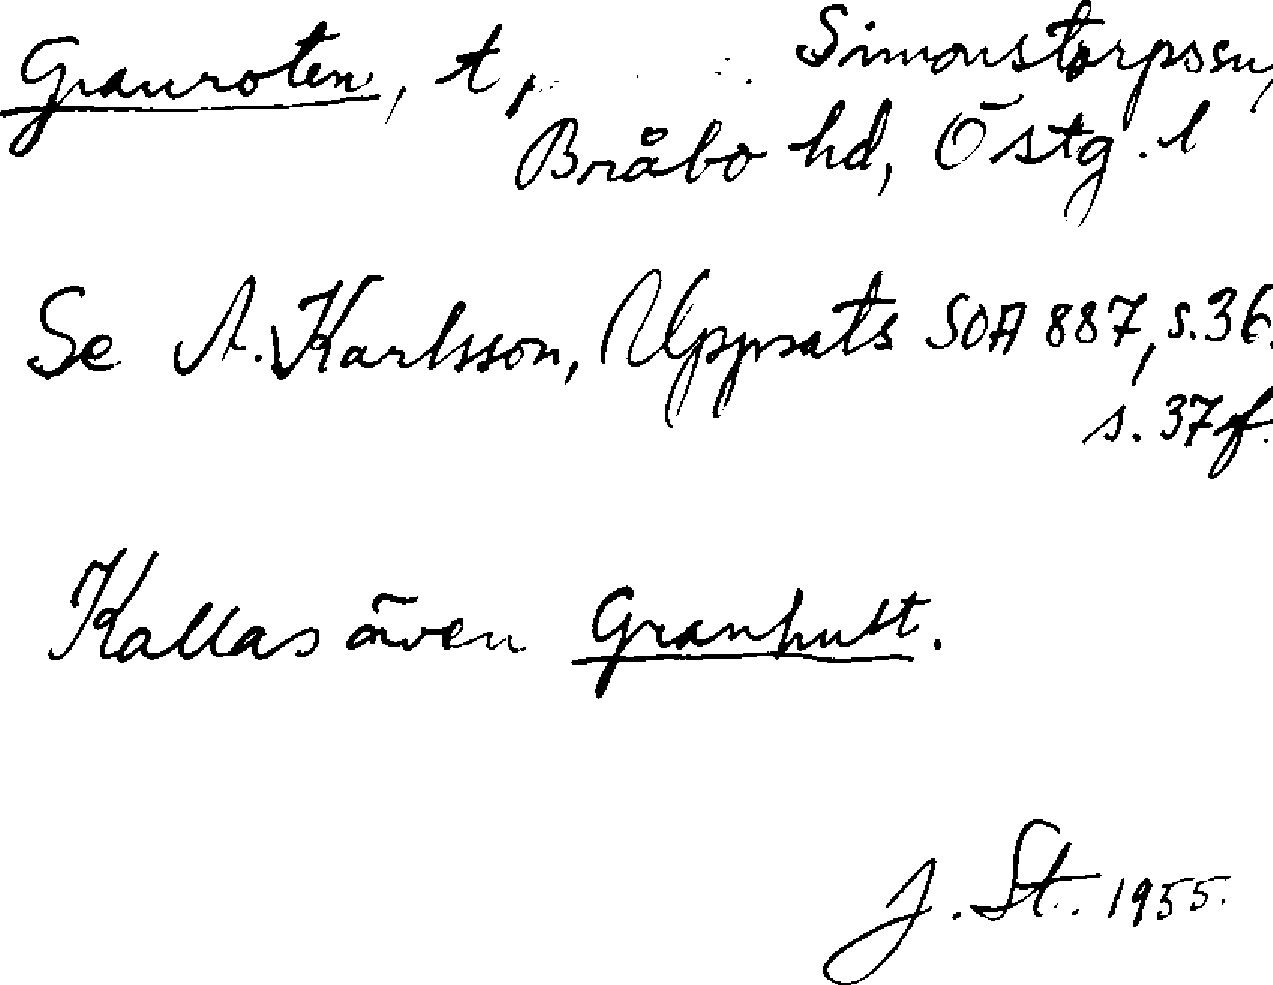 Granroten, t, Simonstorps sn,
Bråbo hd, Östg. l
Se A. Karlsson, Uppsats SOA 887, s. 36.
s. 37 f.
Kallas även Granhult.
J. St. 1955.